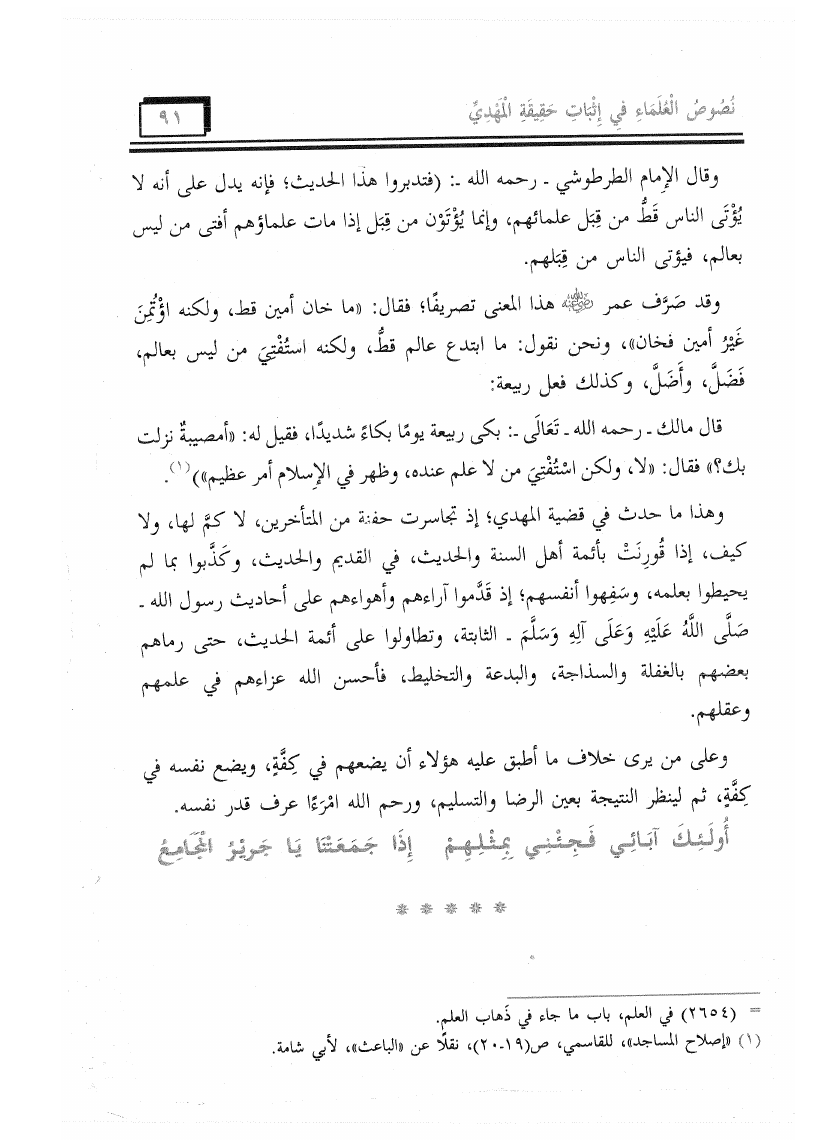 نُصُوصُ الْعُلَمَاءِ فِي إِثْبَاتِ حَقِيقَةِ الْمَهْدِيِّ
٩١
وقال الإمام الطرطوشي ـ رحمه الله ـ: (فتدبروا هذا الحديث؛ فإنه يدل على أنه لا
يُؤْتَى الناس قَطُّ من قِبَل علمائهم، وإنما يُؤْتَوْن من قِبَل إذا مات علماؤهم أفتى من ليس
بعالم، فيؤتى الناس من قِبَلهم.
وقد صَرَّف عمر رضي الله عنه هذا المعنى تصريفًا؛ فقال: «ما خان أمين قط، ولكنه اؤْتُمِنَ
غَيْرُ أمين فخان»، ونحن نقول: ما ابتدع عالم قطُّ، ولكنه استُفْتِيَ من ليس بعالم،
فَضَلَّ، وأَضَلَّ، وكذلك فعل ربيعة:
قال مالك ـ رحمه الله ـ تَعَالَى ـ: بكى ربيعة يومًا بكاءً شديدًا، فقيل له: «أمصيبةٌ نزلت
بك؟» فقال: «لا، ولكن اسْتُفْتِيَ من لا علم عنده، وظهر في الإسلام أمر عظيم»)(١).
وهذا ما حدث في قضية المهدي؛ إذ تجاسرت حفنة من المتأخرين، لا كمَّ لها، ولا
كيف، إذا قُورِنَتْ بأئمة أهل السنة والحديث، في القديم والحديث، وكَذَّبوا بما لم
يحيطوا بعلمه، وسَفِهوا أنفسهم؛ إذ قَدَّموا آراءهم وأهواءهم على أحاديث رسول الله ـ
صَلَّى اللَّهُ عَلَيْهِ وَعَلَى آلِهِ وَسَلَّمَ ـ الثابتة، وتطاولوا على أئمة الحديث، حتى رماهم
بعضهم بالغفلة والسذاجة، والبدعة والتخليط، فأحسن الله عزاءهم في علمهم
وعقلهم.
وعلى من يرى خلاف ما أطبق عليه هؤلاء أن يضعهم في كِفَّةٍ، ويضع نفسه في
كِفَّةٍ، ثم لينظر النتيجة بعين الرضا والتسليم، ورحم الله امْرَءًا عرف قدر نفسه.
أُولَئِكَ آبَائِي فَجِئْنِي بِمِثْلِهِمْ إِذَا جَمَعَتْنَا يَا جَرِيْرُ الْمَجَامِعُ
* * * * *
= (٢٦٥٤) في العلم، باب ما جاء في ذَهاب العلم.
(١) «إصلاح المساجد»، للقاسمي، ص(١٩-٢٠)، نقلًا عن «الباعث»، لأبي شامة.